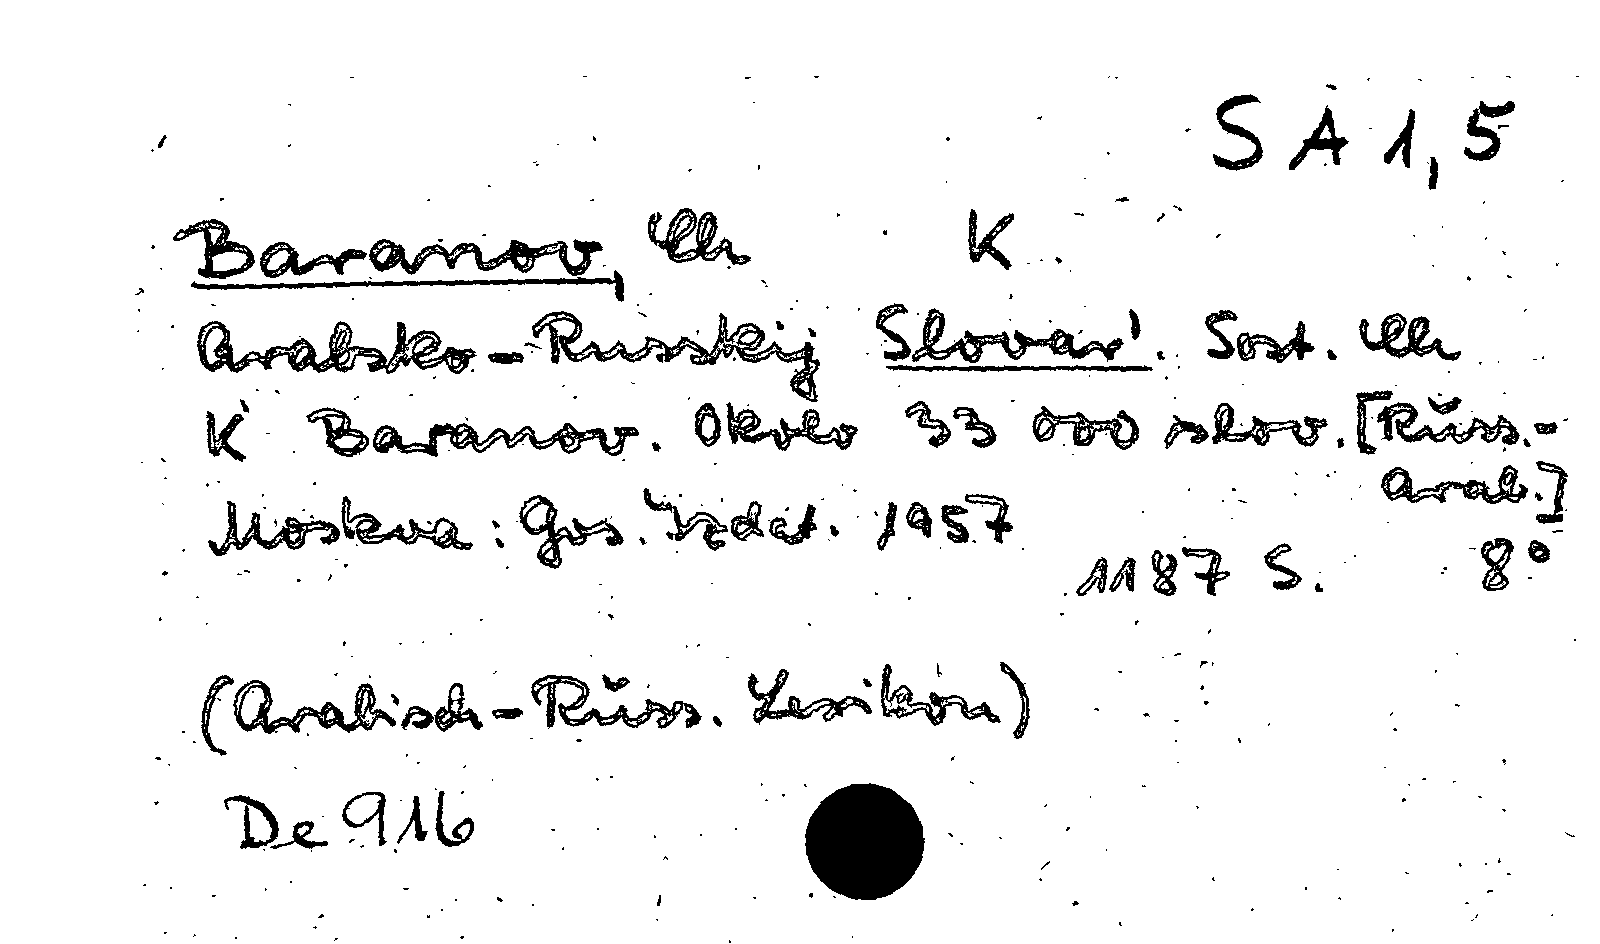 SA 1,5
Baranov, Ch K
Arabsko-Russkij Slovar'. Sost. Ch
K Baranov. Okolo 33 000 slov. [Russ.-
Arab.]
Moskva: Gos. Izdat. 1957
1187 S. 8°
(Arabisch-Russ. Lexikon)
De 916